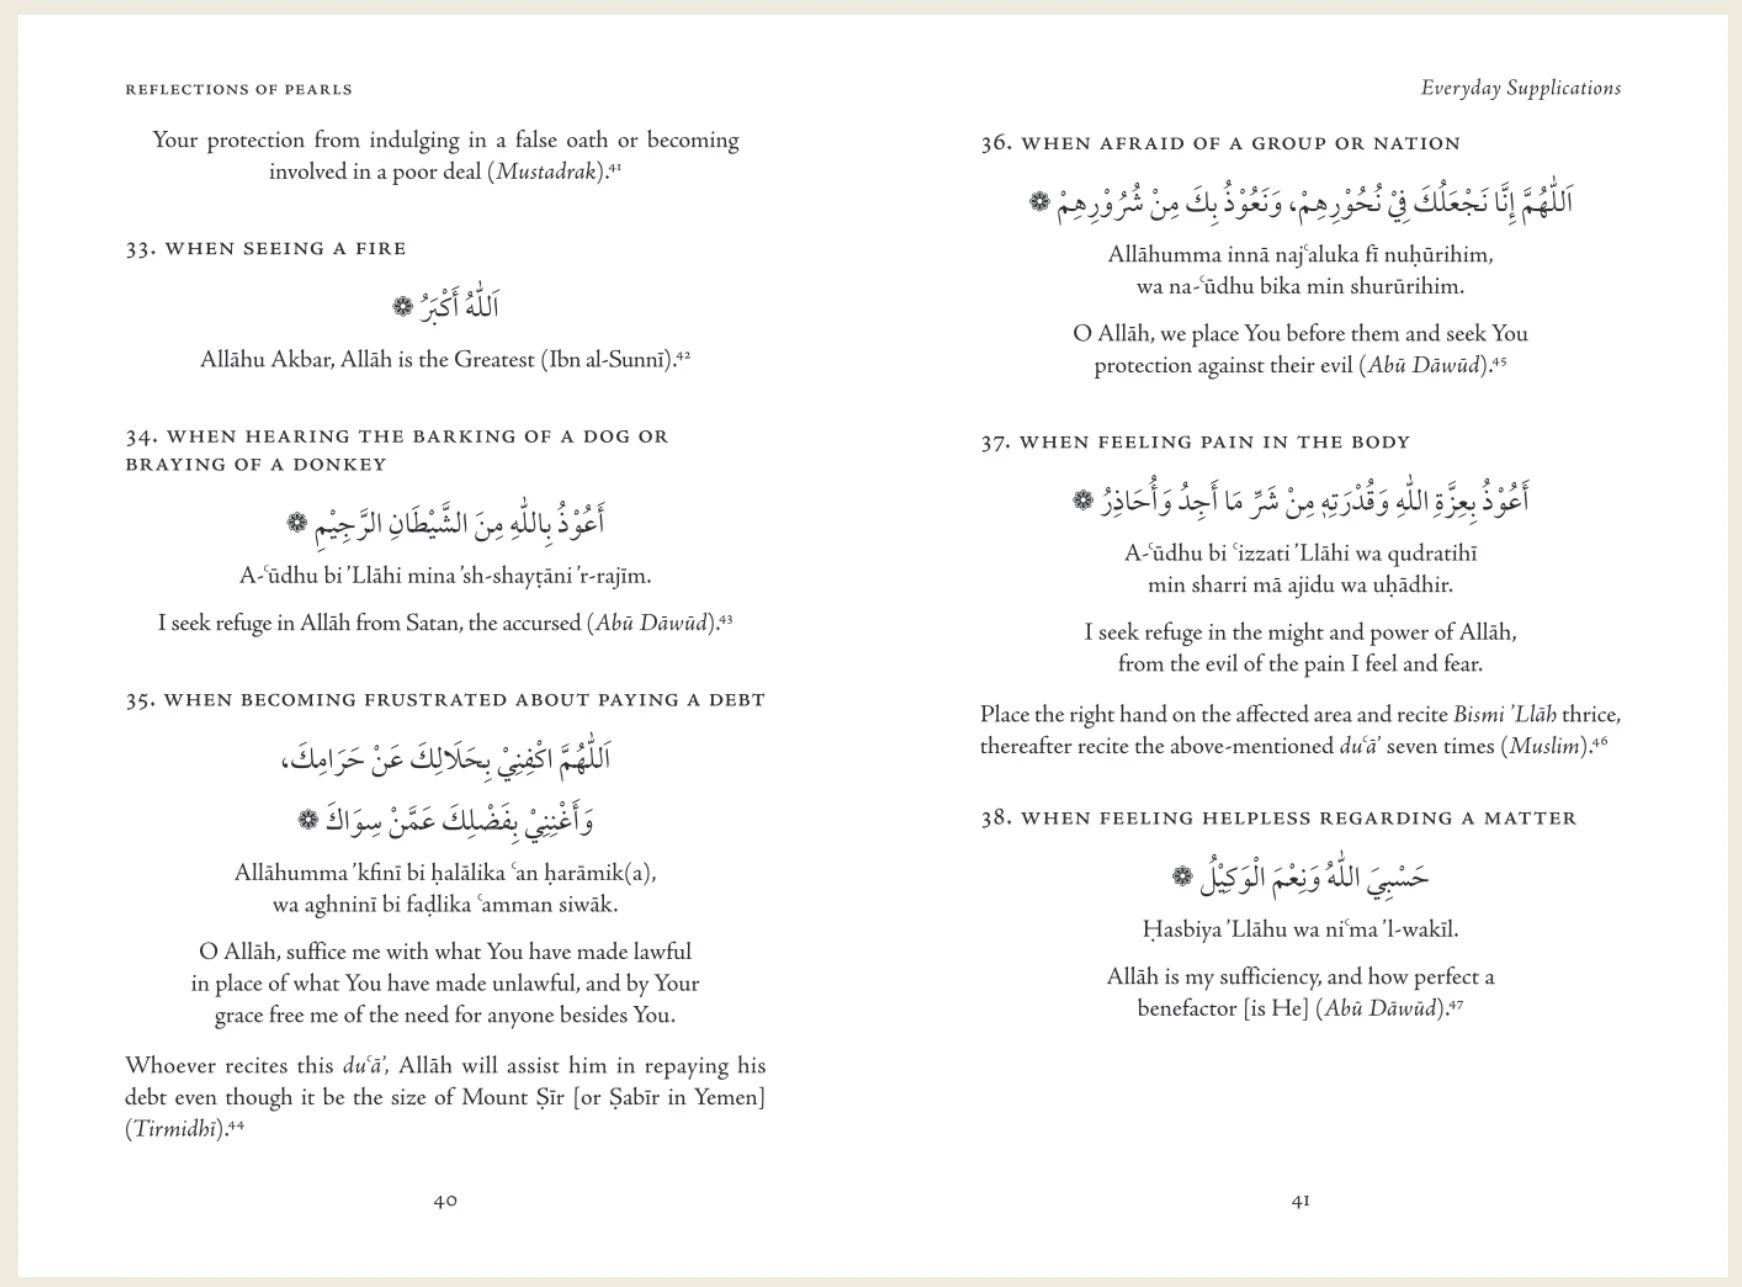 REFLECTIONS OF PEARLS
Your protection from indulging in a false oath or becoming
involved in a poor deal (Mustadrak).⁴¹
33. WHEN SEEING A FIRE
اَللّٰهُ أَكْبَرُ ❁
Allāhu Akbar, Allāh is the Greatest (Ibn al-Sunnī).⁴²
34. WHEN HEARING THE BARKING OF A DOG OR
BRAYING OF A DONKEY
أَعُوْذُ بِاللّٰهِ مِنَ الشَّيْطَانِ الرَّجِيْمِ ❁
A-ʿūdhu bi ’Llāhi mina ’sh-shayṭāni ’r-rajīm.
I seek refuge in Allāh from Satan, the accursed (Abū Dāwūd).⁴³
35. WHEN BECOMING FRUSTRATED ABOUT PAYING A DEBT
اَللّٰهُمَّ اكْفِنِيْ بِحَلَالِكَ عَنْ حَرَامِكَ،
وَأَغْنِنِيْ بِفَضْلِكَ عَمَّنْ سِوَاكَ ❁
Allāhumma ’kfinī bi ḥalālika ʿan ḥarāmik(a),
wa aghninī bi faḍlika ʿamman siwāk.
O Allāh, suffice me with what You have made lawful
in place of what You have made unlawful, and by Your
grace free me of the need for anyone besides You.
Whoever recites this duʿā’, Allāh will assist him in repaying his
debt even though it be the size of Mount Ṣīr [or Ṣabīr in Yemen]
(Tirmidhī).⁴⁴
40
Everyday Supplications
36. WHEN AFRAID OF A GROUP OR NATION
اَللّٰهُمَّ إِنَّا نَجْعَلُكَ فِيْ نُحُوْرِهِمْ، وَنَعُوْذُ بِكَ مِنْ شُرُوْرِهِمْ ❁
Allāhumma innā najʿaluka fī nuḥūrihim,
wa na-ʿūdhu bika min shurūrihim.
O Allāh, we place You before them and seek You
protection against their evil (Abū Dāwūd).⁴⁵
37. WHEN FEELING PAIN IN THE BODY
أَعُوْذُ بِعِزَّةِ اللّٰهِ وَقُدْرَتِهٖ مِنْ شَرِّ مَا أَجِدُ وَأُحَاذِرُ ❁
A-ʿūdhu bi ʿizzati ’Llāhi wa qudratihī
min sharri mā ajidu wa uḥādhir.
I seek refuge in the might and power of Allāh,
from the evil of the pain I feel and fear.
Place the right hand on the affected area and recite Bismi ’Llāh thrice,
thereafter recite the above-mentioned duʿā’ seven times (Muslim).⁴⁶
38. WHEN FEELING HELPLESS REGARDING A MATTER
حَسْبِيَ اللّٰهُ وَنِعْمَ الْوَكِيْلُ ❁
Ḥasbiya ’Llāhu wa niʿma ’l-wakīl.
Allāh is my sufficiency, and how perfect a
benefactor [is He] (Abū Dāwūd).⁴⁷
41